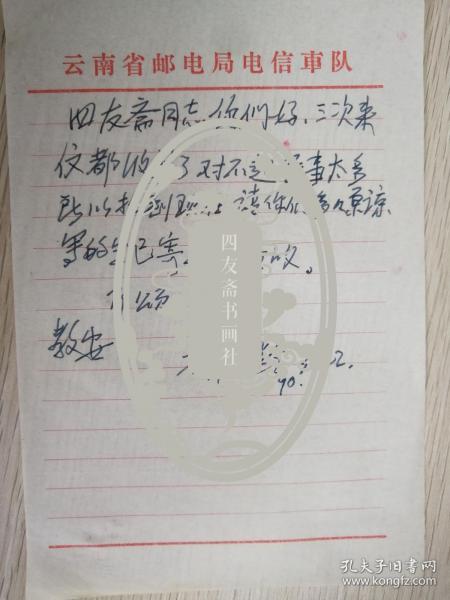 云南省邮电局电信車队
四友斋同志你们好、三次来
仪都收 了对不起 事太多
所以 到现在 请你们多多原谅
写的 已寄 收。
颂
教安
90.
四友斋书画社
孔夫子旧书网
www.kongfz.com